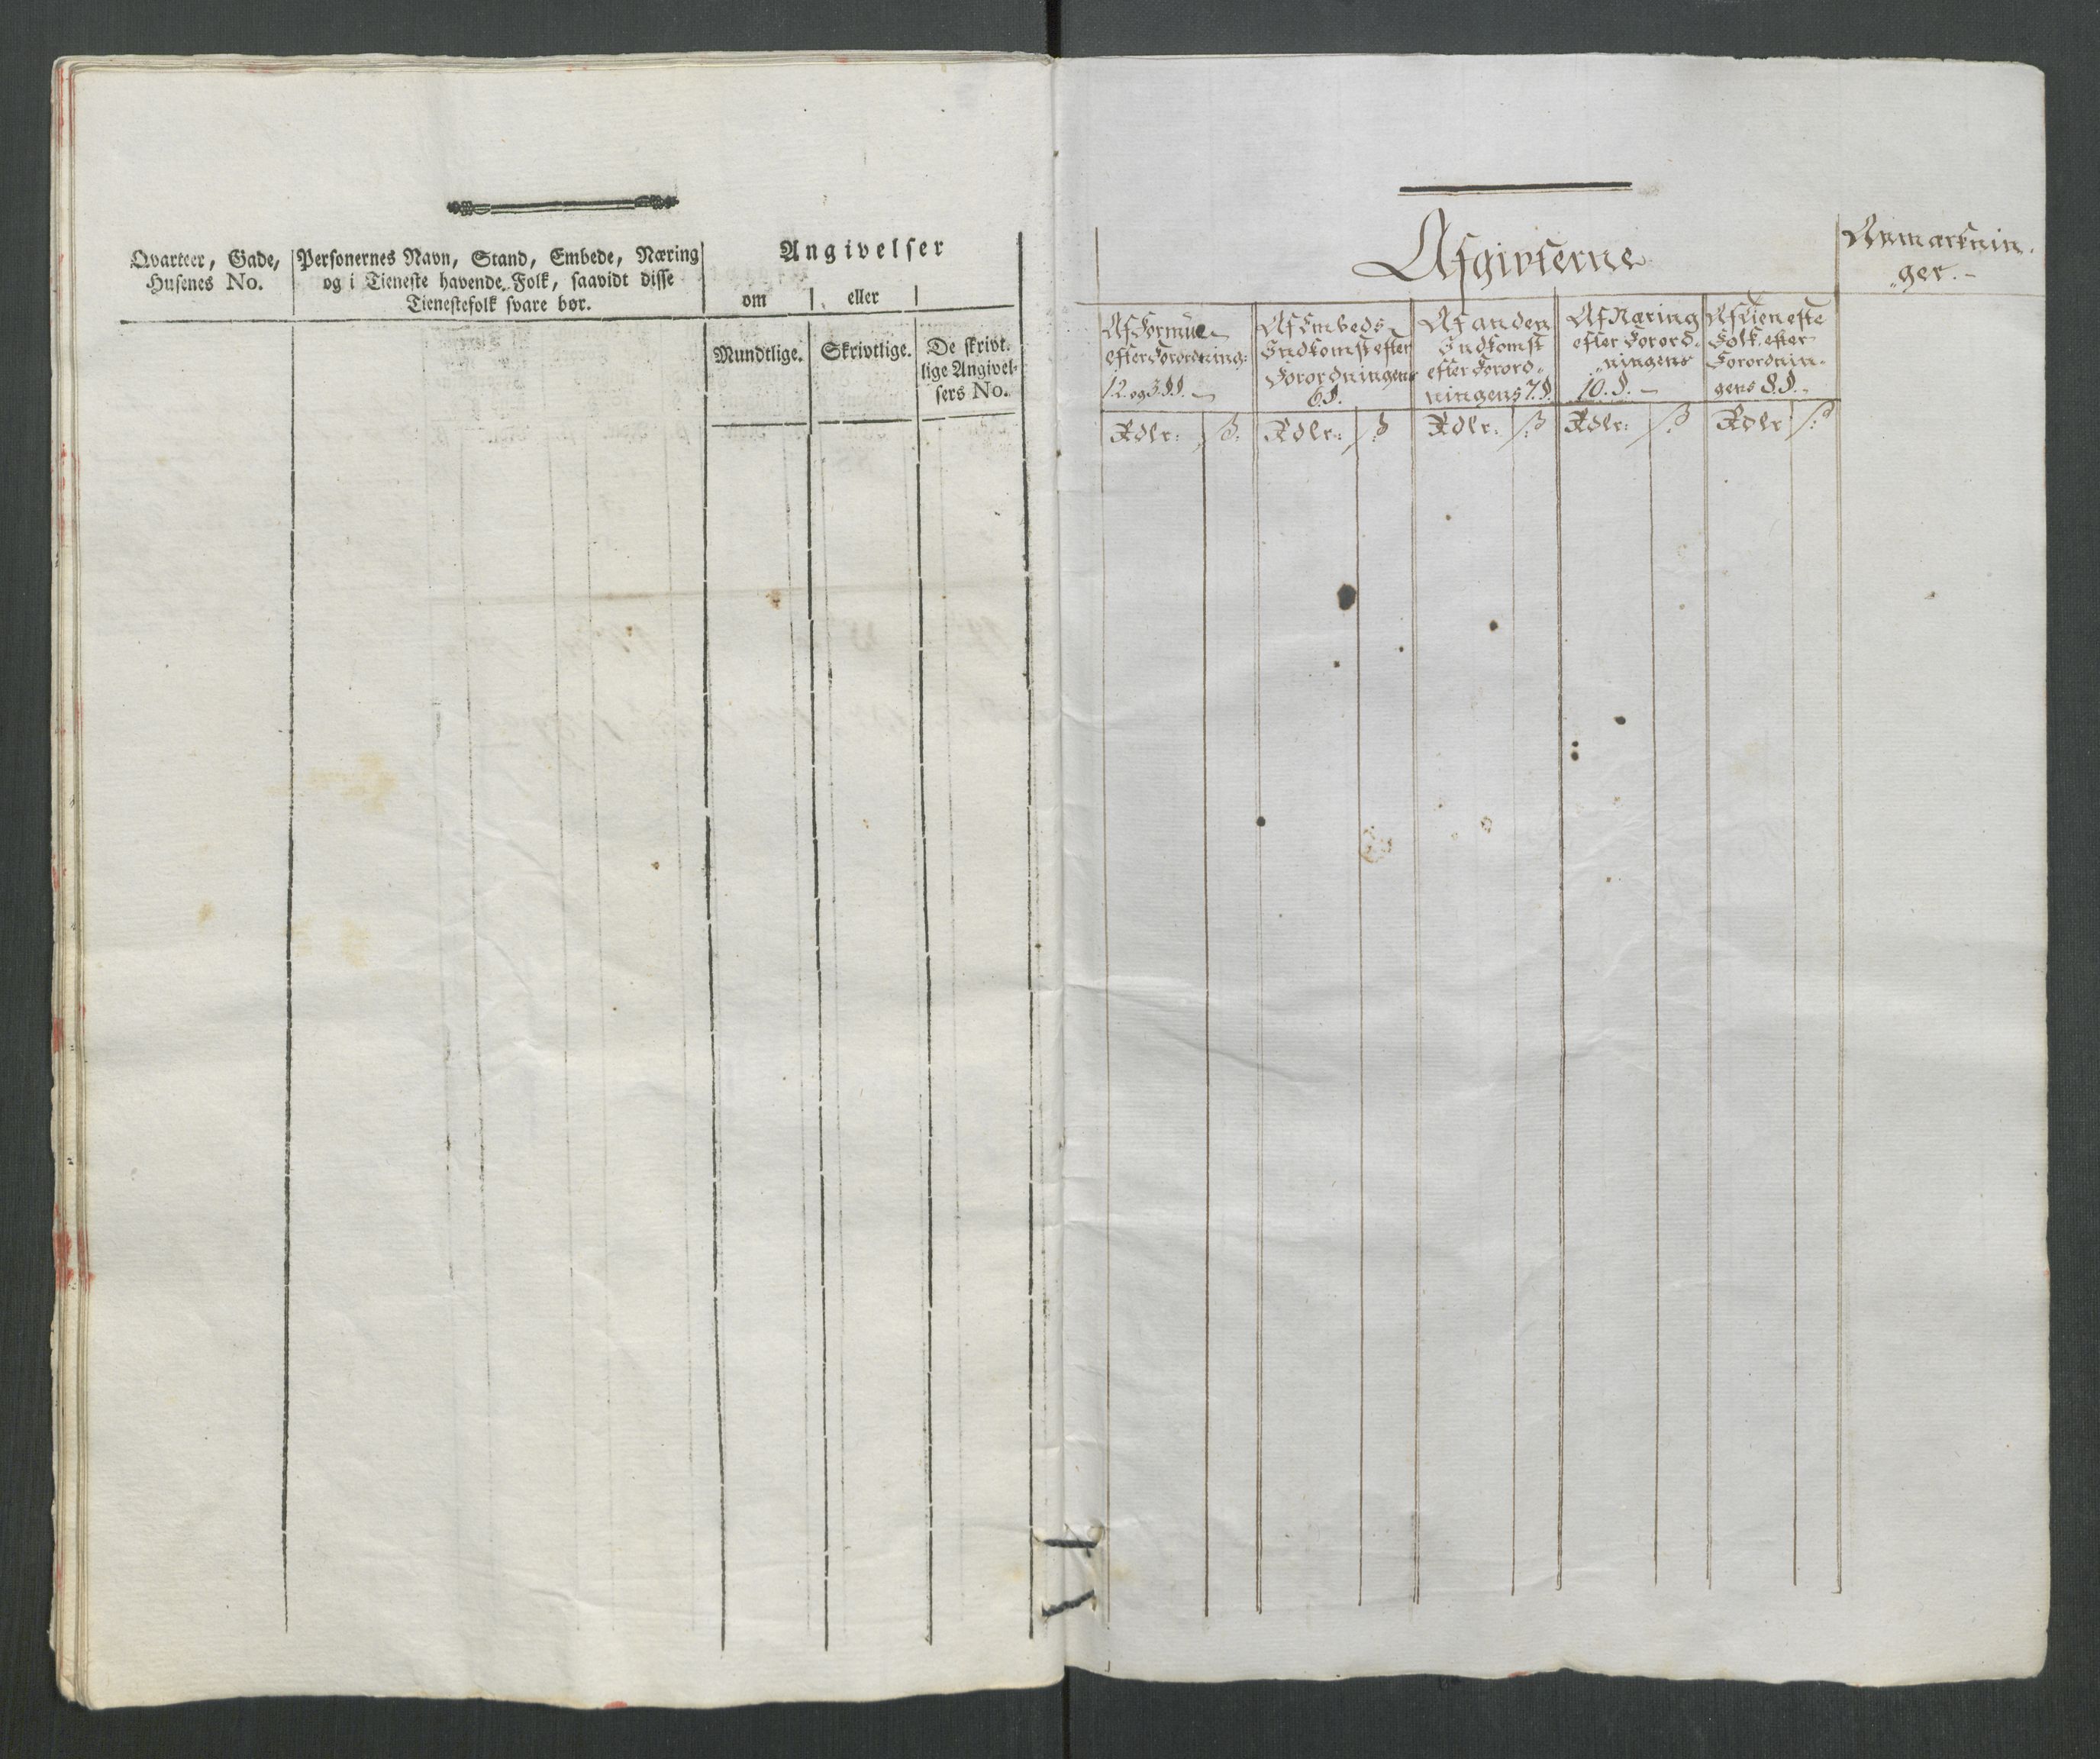 Qvarteer, Gade,
Husenes No.
Personernes Navn, Stand, Embede, Næring
og i Tieneste havende Folk, saavidt disse
Tienestefolk svare bør.
Angivelser
om eller
Mundtlige.
Skrivtlige.
De skrivt-
lige Angivel-
sers No.
Afgivterne
Anmærknin-
„ger.-
Af Formue
efter Forordning:
12. og 3 §§.
Af Embeds
Indkomst efter
Forordningens
6 §.
Af anden
Indkomst
efter Forord„
ningens 7. §.
Af Næring
efter Forord-
„ningens
10. §. -
Af Tieneste
Folk efter
Forordnin-
gens 8. §. -
Rdlr: ß:
Rdlr: ß
Rdlr: ß
Rdlr: ß
Rdlr ß